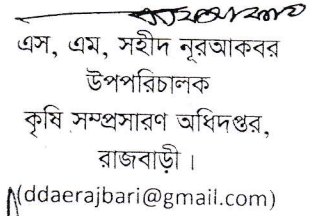 এস, এম, সহীদ নূরআকবর
উপপরিচালক
কৃষি সম্প্রসারণ অধিদপ্তর,
রাজবাড়ী ।
(ddaerajbari@gmail.com)